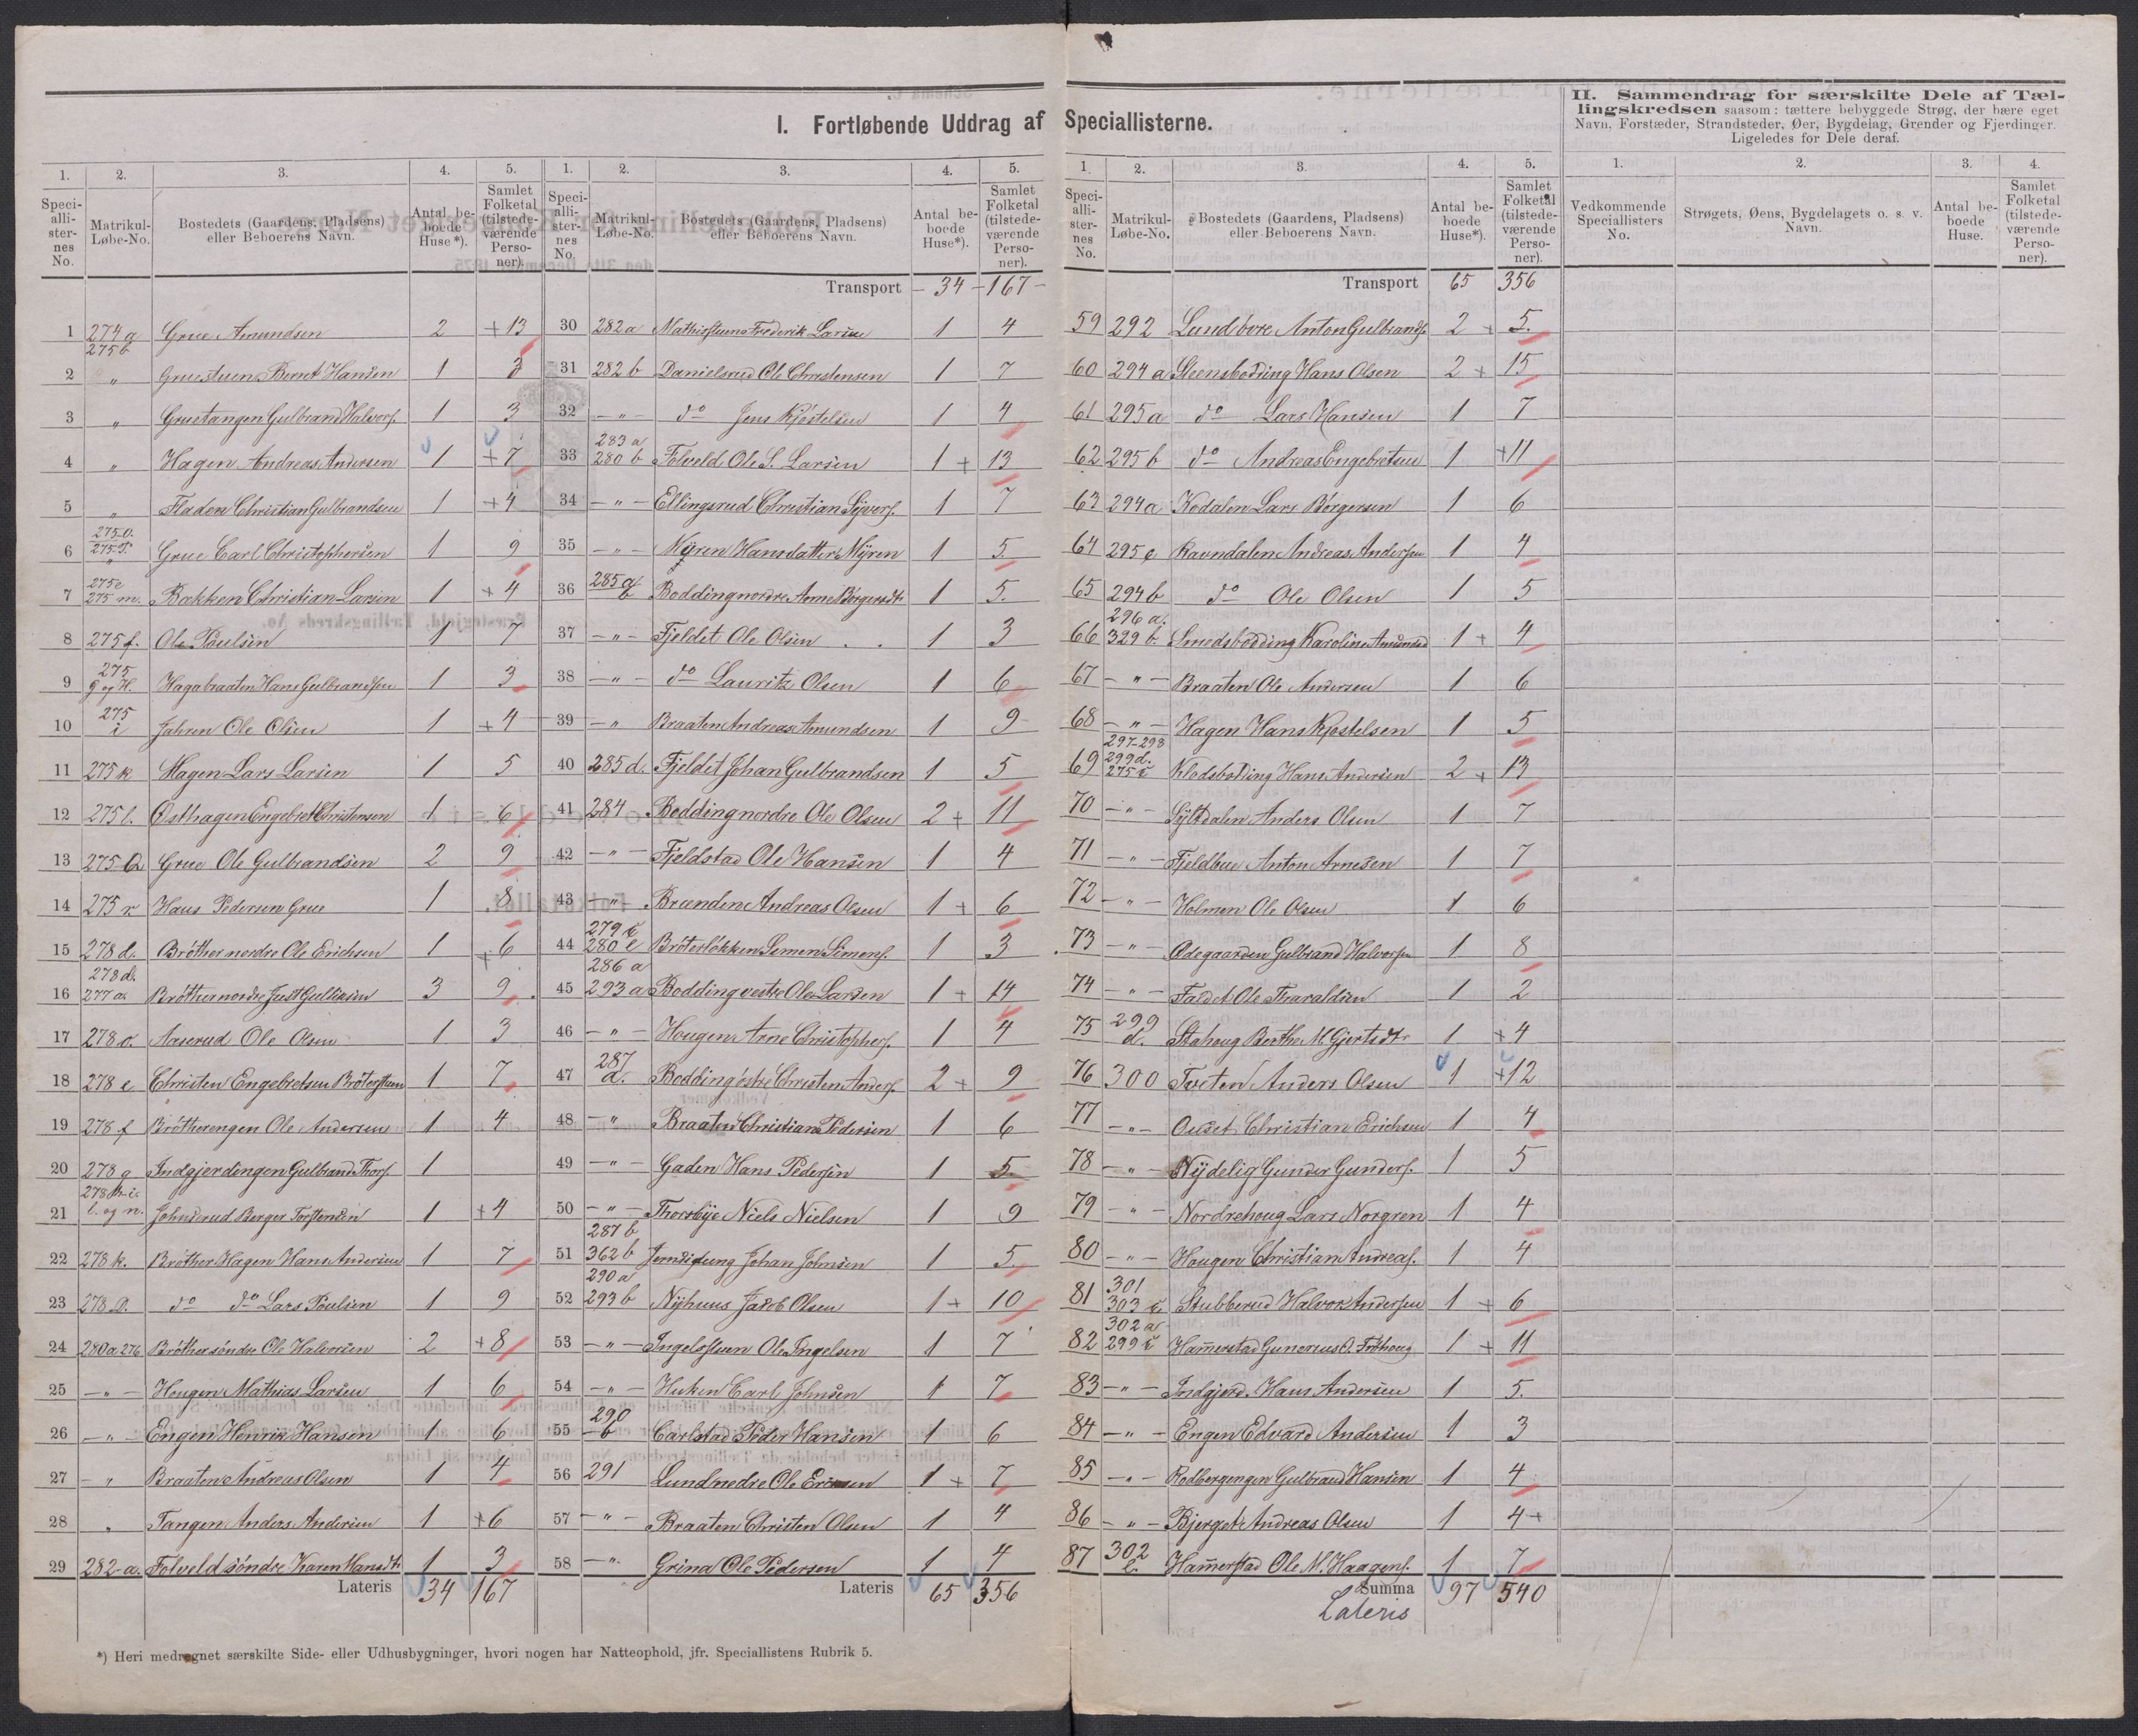 I. Fortløbende Uddrag af Speciallisterne.
II. Sammendrag for særskilte Dele af Tæl-
lingskredsen saasom: tættere bebyggede Strøg, der bære eget
Navn, Forstæder, Strandsteder, Øer, Bygdelag, Grender og Fjerdinger.
Ligeledes for Dele deraf.
1. 2. 3. 4. 5.
Speci-alli-ster-nes No. Matrikul-Løbe-No. Bostedets (Gaardens, Pladsens) eller Beboerens Navn. Antal be-boede Huse*). Samlet Folketal (tilstede-værende Perso-ner).
1 274a 275b Grue Amundsen 2 +13
2 " Gruestuen Bernt Hansen 1 3
3 " Gruetangen Gulbrand Halvors. 1 3
4 " Hagen Andreas Andersen 1 +7
5 " Fladen Christian Gulbrandsen 1 +4
6 275o. Grue Carl Christophersen 1 9
7 275e 275m. Bakken Christian Larsen 1 +4
8 275f. Ole Poulsen 1 7
9 275 g og H. Hagabraaten Hans Gulbrandsen 1 3
10 275 i Jahren Ole Olsen 1 +4
11 275k Hagen Lars Larsen 1 5
12 275l. Østhagen Engebret Christensen 1 6
13 275 Grue Ole Gulbrandsen 2 9
14 275 r Hans Pedersen Grue 1 8
15 278d. Brøther nordre Ole Erichsen 1 +6
16 278d. 277a Brøther nordre Just Gulliksen 3 9
17 278o. Aaserud Ole Olsen 1 3
18 278e Christen Engebretsen Brøterstuen 1 7
19 278f Brøtherengen Ole Andersen 1 4
20 278g Indgjerdingen Gulbrand Thors. 1
21 278h.i. l. og n. Johnsrud Berger Torstensen 1 +4
22 278k. Brøther Hagen Hans Andersen 1 7
23 278 do do Lars Poulsen 1 9
24 280a 276 Brøther søndre Ole Halvorsen 2 +8
25 -"- Hougen Mathias Larsen 1 6
26 -"- Engen Henrik Hansen 1 6
27 -" Braaten Andreas Olsen 1 4
28 " Tangen Anders Andersen 1 +6
29 282-a. Folveld søndre Karen Hansdt. 1 3
Lateris 34 167
1. 2. 3. 4. 5.
Speci-alli-ster-nes No. Matrikul-Løbe-No. Bostedets (Gaardens, Pladsens) eller Beboerens Navn. Antal be-boede Huse*). Samlet Folketal (tilstede-værende Perso-ner).
Transport - 34 - 167 -
30 282a Mathisstuen Frederik Larsen 1 4
31 282b Danielsrud Ole Christensen 1 7
32 -"- do Jens Kjøstelsen 1 4
33 283a 280b Folveld Ole S. Larsen 1+ 13
34 -"- Ellingsrud Christian Syvers. 1 7
35 -"- Myren Hansdatter Myren 1 5.
36 285a b Boddingnordre Arne Børgersdt. 1 5.
37 -"- Fjeldet Ole Olsen 1 3
38 -"- do Lauritz Olsen 1 6
39 -" Braaten Andreas Amundsen 1 9
40 285d. Fjeldet Johan Gulbrandsen 1 5
41 284 Boddingnordre Ole Olsen 2+ 11
42 -"- Fjeldstad Ole Hansen 1 4
43 -"- Brænden Andreas Olsen 1+ 6
44 279c 280e Brøterløkken Simen Simens. 1 3
45 286a 293a Bodding vestre Ole Larsen 1+ 14
46 -"- Hougen Arne Christophers. 1 4
47 287 a. Bodding østre Christen Anders. 2+ 9
48 -" Braaten Christian Pedersen 1 6
49 -"- Gaden Hans Pedersen 1 5.
50 -"- Thorsbye Niels Nielsen 1 9
51 287b 362b Johan Johnsen 1 5.
52 290a 293b Nyhuus Jacob Olsen 1+ 10
53 -"- Ingelsstuen Ole Ingelsen 1 7
54 -"- Huken Carl Johnsen 1 7
55 290 b Carlstad Peder Hansen 1 6
56 291 Lundnedre Ole Ericsen 1+ 7
57 -"- Braaten Christen Olsen 1 4
58 -"- Grina Ole Pedersen 1 4
Lateris 65 356
1. 2. 3. 4. 5.
Speci-alli-ster-nes No. Matrikul-Løbe-No. Bostedets (Gaardens, Pladsens) eller Beboerens Navn. Antal be-boede Huse*). Samlet Folketal (tilstede-værende Perso-ner).
Transport 65 356
59 292 Lundøvre Anton Gulbrands. 2+ 5.
60 294a Steensbodding Hans Olsen 2+ 15
61 295a do Lars Hansen 1 7
62 295b do Andreas Engebretsen 1 +11
63 294a Kodalen Lars Børgersen 1 6
64 295c Ravndalen Andreas Andersen 1 4
65 294b do Ole Olsen 1 5
66 296a. 329b. Smedsbodding Karoline Amundsd 1+ 4
67 -"- Braaten Ole Andersen 1 6
68 -"- Hagen Hans Kjøstelsen 1 5
69 297-298 299d. 275c Klodsbodding Hans Andersen 2+ 13
70 -"- Syltdalen Anders Olsen 1 7
71 -"- Fjeldbue Anton Arnesen 1 7
72 -"- Holmen Ole Olsen 1 6
73 -"- Ødegaarden Gulbrand Halvorsen 1 8
74 -"- Faldet Ole Tharaldsen 1 2
75 299 d. Stahoug Berthe M. Gjertsdtr 1 +4
76 300 Tveten Anders Olsen 1 +12
77 -"- Ouset Christian Erichsen 1 4
78 -"- Nydelig Gunder Gunders. 1 5
79 -"- Nordrehoug Lars Norgren 1 4
80 -"- Hougen Christian Andreas. 1 4
81 301 303c Stubberud Halvor Andersen 1+ 6
82 302a 299c Hammerstad Gunerius O. Frøhoug 1+ 11
83 -"- Indgjerd. Hans Andersen 1 5.
84 -"- Engen Edvard Andersen 1 3
85 -"- Rodbergengen Gulbrand Hansen 1 4
86 -"- Bjerget Andreas Olsen 1 4+
87 302 b. Hammerstad Ole M. Haagens. 1 7
Summa 97 540
Lateris
1. 2. 3. 4.
Vedkommende Speciallisters No. Strøgets, Øens, Bygdelagets o. s. v. Navn. Antal be-boede Huse. Samlet Folketal (tilstede-værende Perso-ner).
*) Heri medregnet særskilte Side- eller Udhusbygninger, hvori nogen har Natteophold, jfr. Speciallistens Rubrik 5.